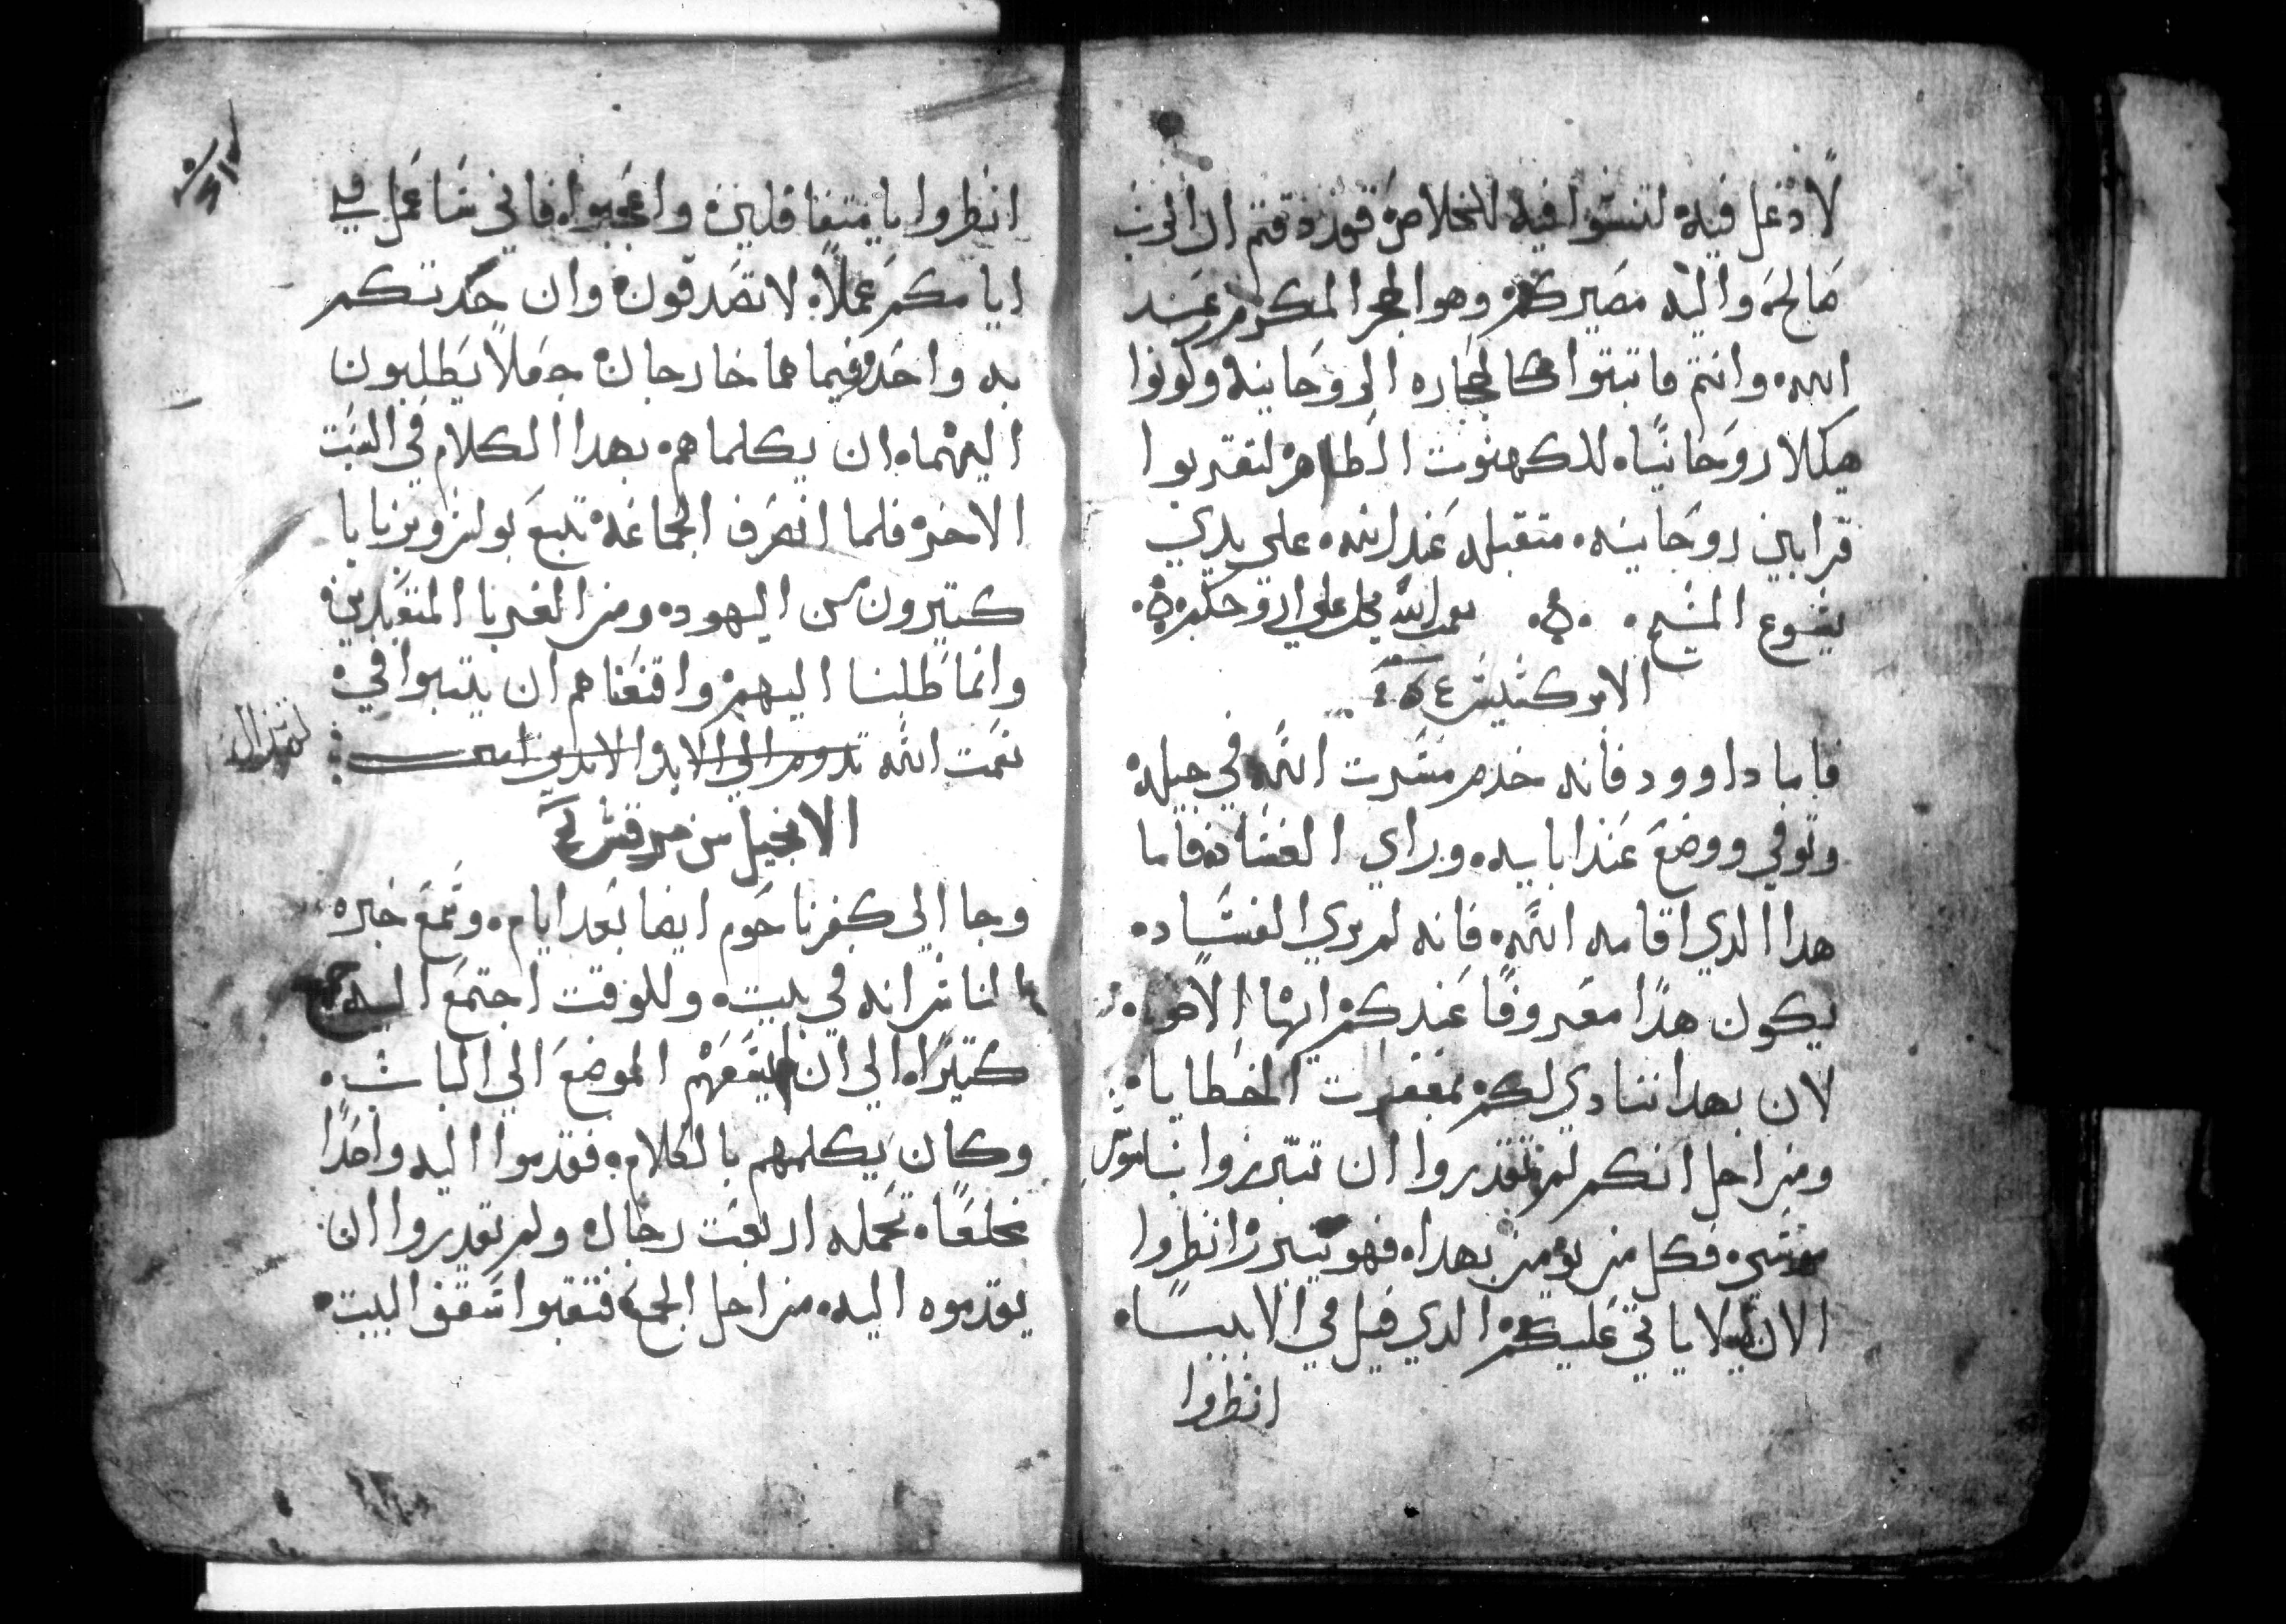 لا دغل فيه لتنسوا فيه للخلاص فقد دقتم ان الرب
صالحه واليه مصيركم وهو الحجر المكرم عند
الله وانتم فاتبتوا كالحجاره الروحانيه وكونوا
هيكلا روحانيا للكهنوت الطاهر لتقربوا
قرابين روحانيه متقبله عند الله علي يدي
يسوع المسيح نعمت الله تحل علي ارواحكم
الابركسيس
فاما داوود فانه خدم مسرت الله في جيله
وتوفي ووضع عند ابايه وراي الفساد فاما
هدا الدي اقامه الله فانه لم يري الفساد
يكون هدا معروفا عندكم ايها الاخوه
لان بهدا ننادي لكم بمغفرت الخطايا
ومن اجل انكم لم تقدروا ان تتبرروا بناموس
موسي فكل من يومن بهدا فهو يتبرر انظروا
الان ليلا ياتي عليكم الدي قيل في الانبيا
انظروا
انظروا يا متغافلين واعجبوا فاني ساعمل في
ايامكم عملا لا تصدقون وان حدتكم
به واحد وفيما هما خارجان جعلا يطلبون
اليهما ان يكلماهم بهدا الكلام في السبت
الاخر فلما انصرف الجماعه تبع بولس وبرنابا
كتيرون من اليهود ومن الغربا المتعبدين
وانما طلبنا اليهم واقنعناهم ان يتبتوا في
نعمت الله تدوم الي الابد الابدين امين
لم تزال
الانجيل من مرقس
وجا الي كفرناحوم ايضا بعد ايام وسمع خبره
الناس انه في بيت وللوقت اجتمع اليه جمع
كتيرا الي ان لم يسعهم الموضع الي الباب
وكان يكلمهم بالكلام فقدموا اليه واحدا
مخلعا تحمله اربعت رجال ولم تقدروا ان
يقدموه اليه من اجل الجمع فنقبوا سقف البيت